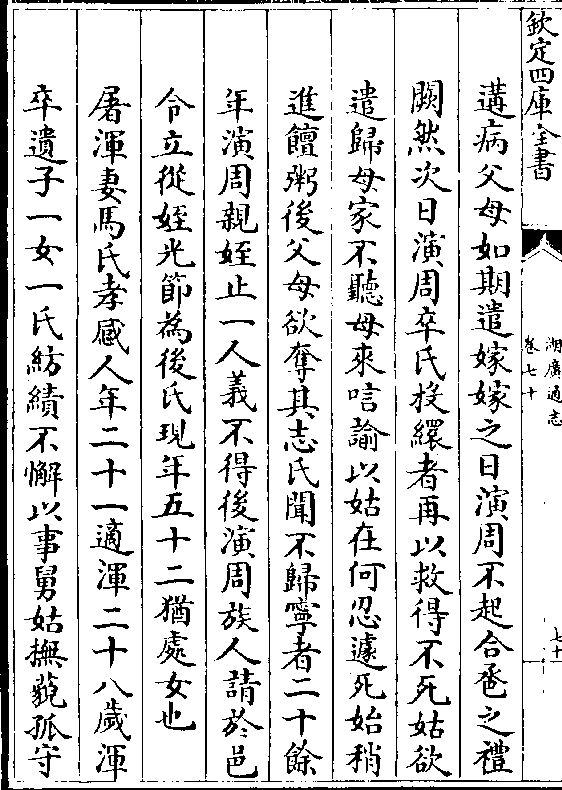 欽定四庫全書
湖廣通志
卷七十
七十一
遘病父母如期遣嫁嫁之日演周不起合巹之禮
闕然次日演周卒氏投繯者再以救得不死姑欲
遣歸母家不聽母來唁諭以姑在何忍遽死始稍
進饘粥後父母欲奪其志氏聞不歸寧者二十餘
年演周親姪止一人義不得後演周族人請於邑
令立從姪光節為後氏現年五十二猶處女也
屠渾妻馬氏孝感人年二十一適渾二十八歲渾
卒遺子一女一氏紡績不懈以事舅姑撫藐孤守